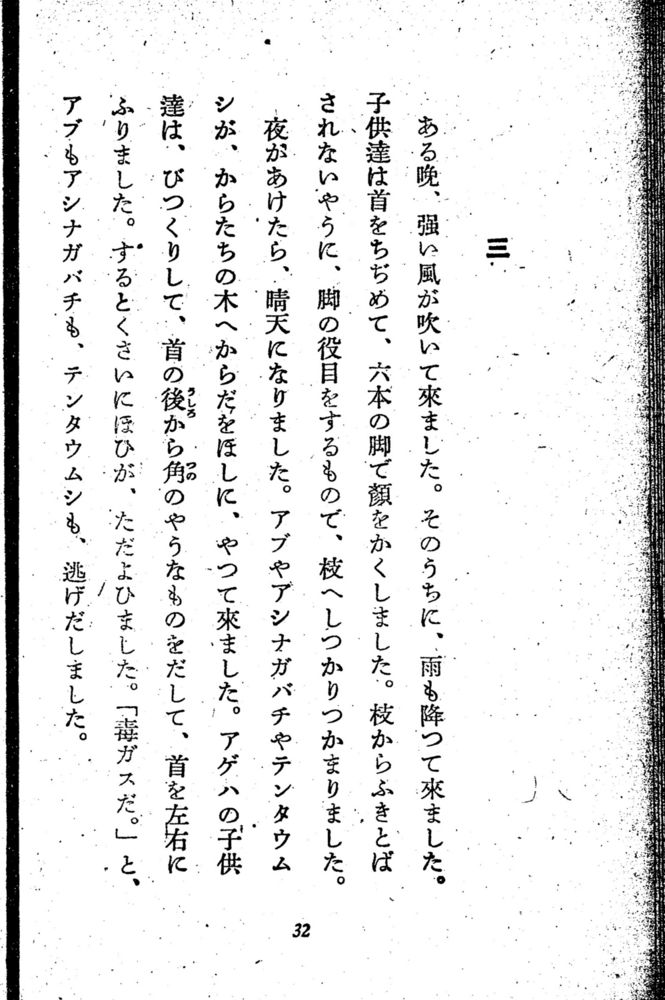 三
ある晚、强い風が吹いて來ました。そのうちに、雨も降つて來ました。
子供達は首をちぢめて、六本の脚で顏をかくしました。枝からふきとば
されないやうに、脚の役目をするもので、枝へしつかりつかまりました。
夜があけたら、晴天になりました。アブやアシナガバチやテンタウム
シが、からたちの木へからだをほしに、やつて來ました。アゲハの子供
達は、びつくりして、首の後うしろから角つののやうなものをだして、首を左右に
ふりました。するとくさいにほひが、ただよひました。「毒ガスだ。」と、
アブもアシナガバチも、テンタウムシも、逃げだしました。
32